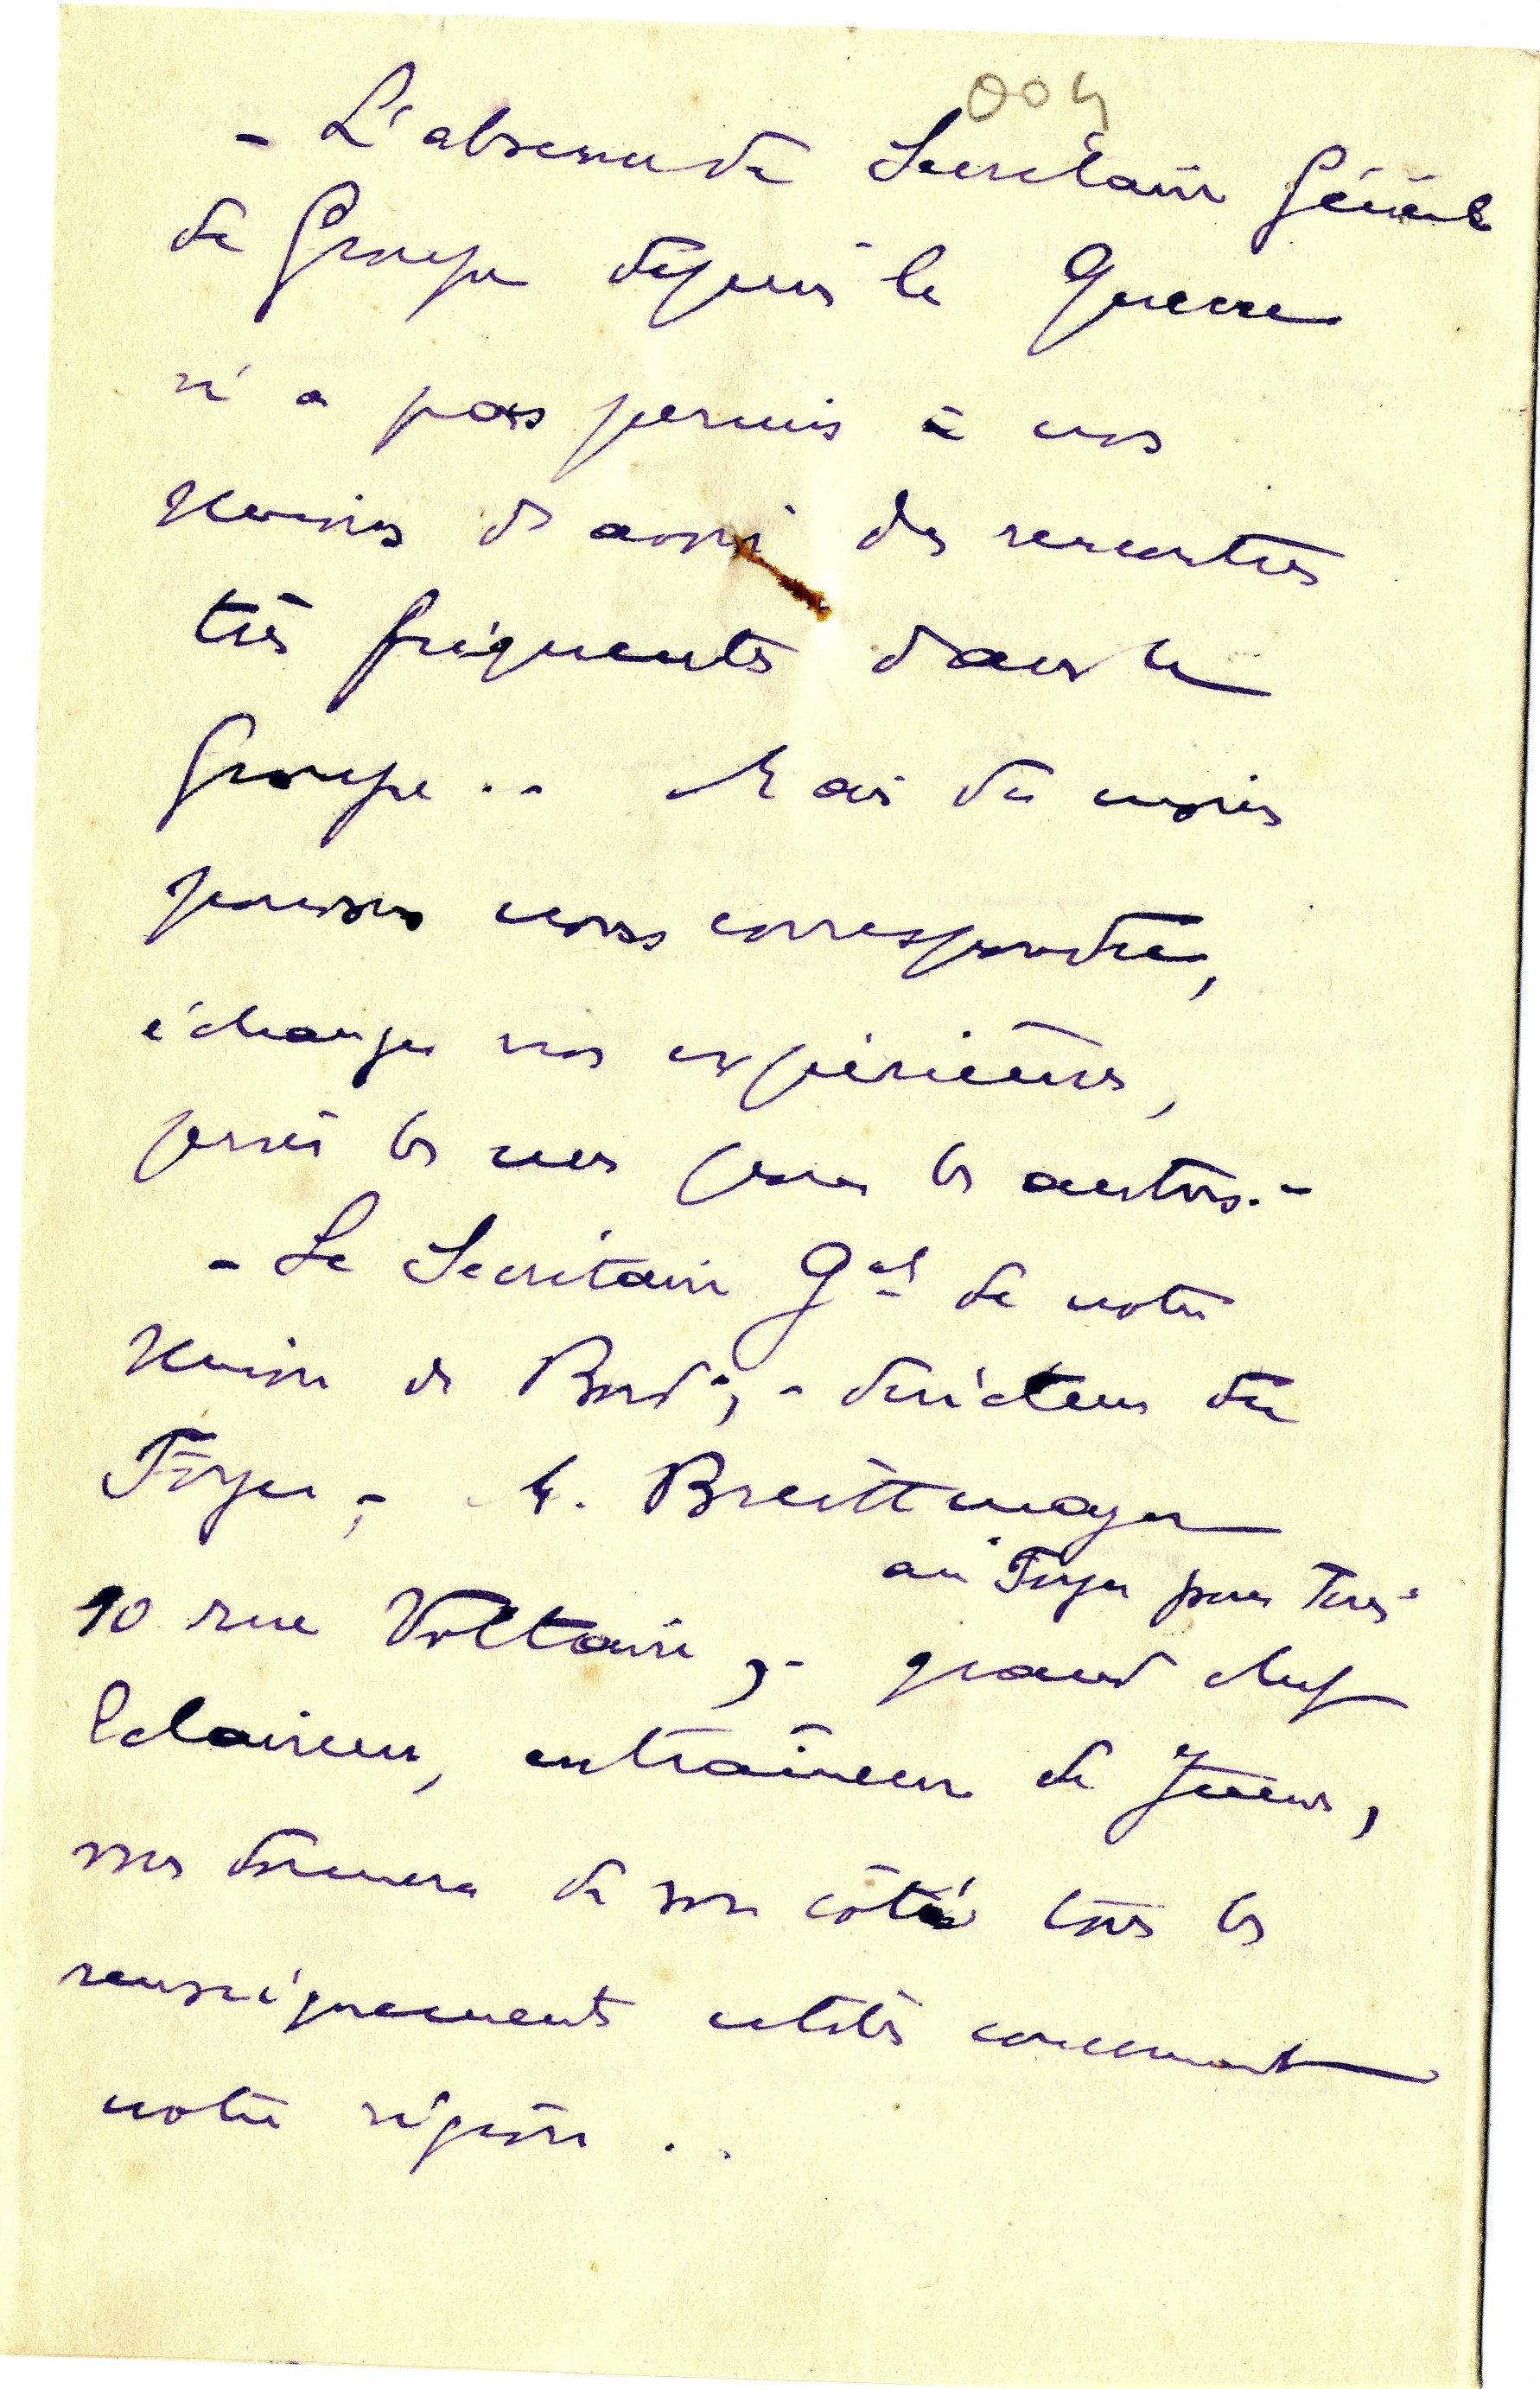 004
- L'absence du Secrétaire Général
du Groupe depuis la Guerre
n'a pas permis à nos
Unions d'avoir des rencontres
très fréquentes dans le
Groupe.. Mais du moins
pouvons nous correspondre,
échanger nos expériences,
prier les uns pour les autres.-
- Le Secrétaire Gal de notre
Union de Bordx, - directeur du
Foyer, - M. Breittmayer
au Foyer pour Tous
10 rue Voltaire, - grand chef
Eclaireur, entraîneur de Jeunes,
vous donnera de son côté tous les
renseignements utiles concernant
notre région ..